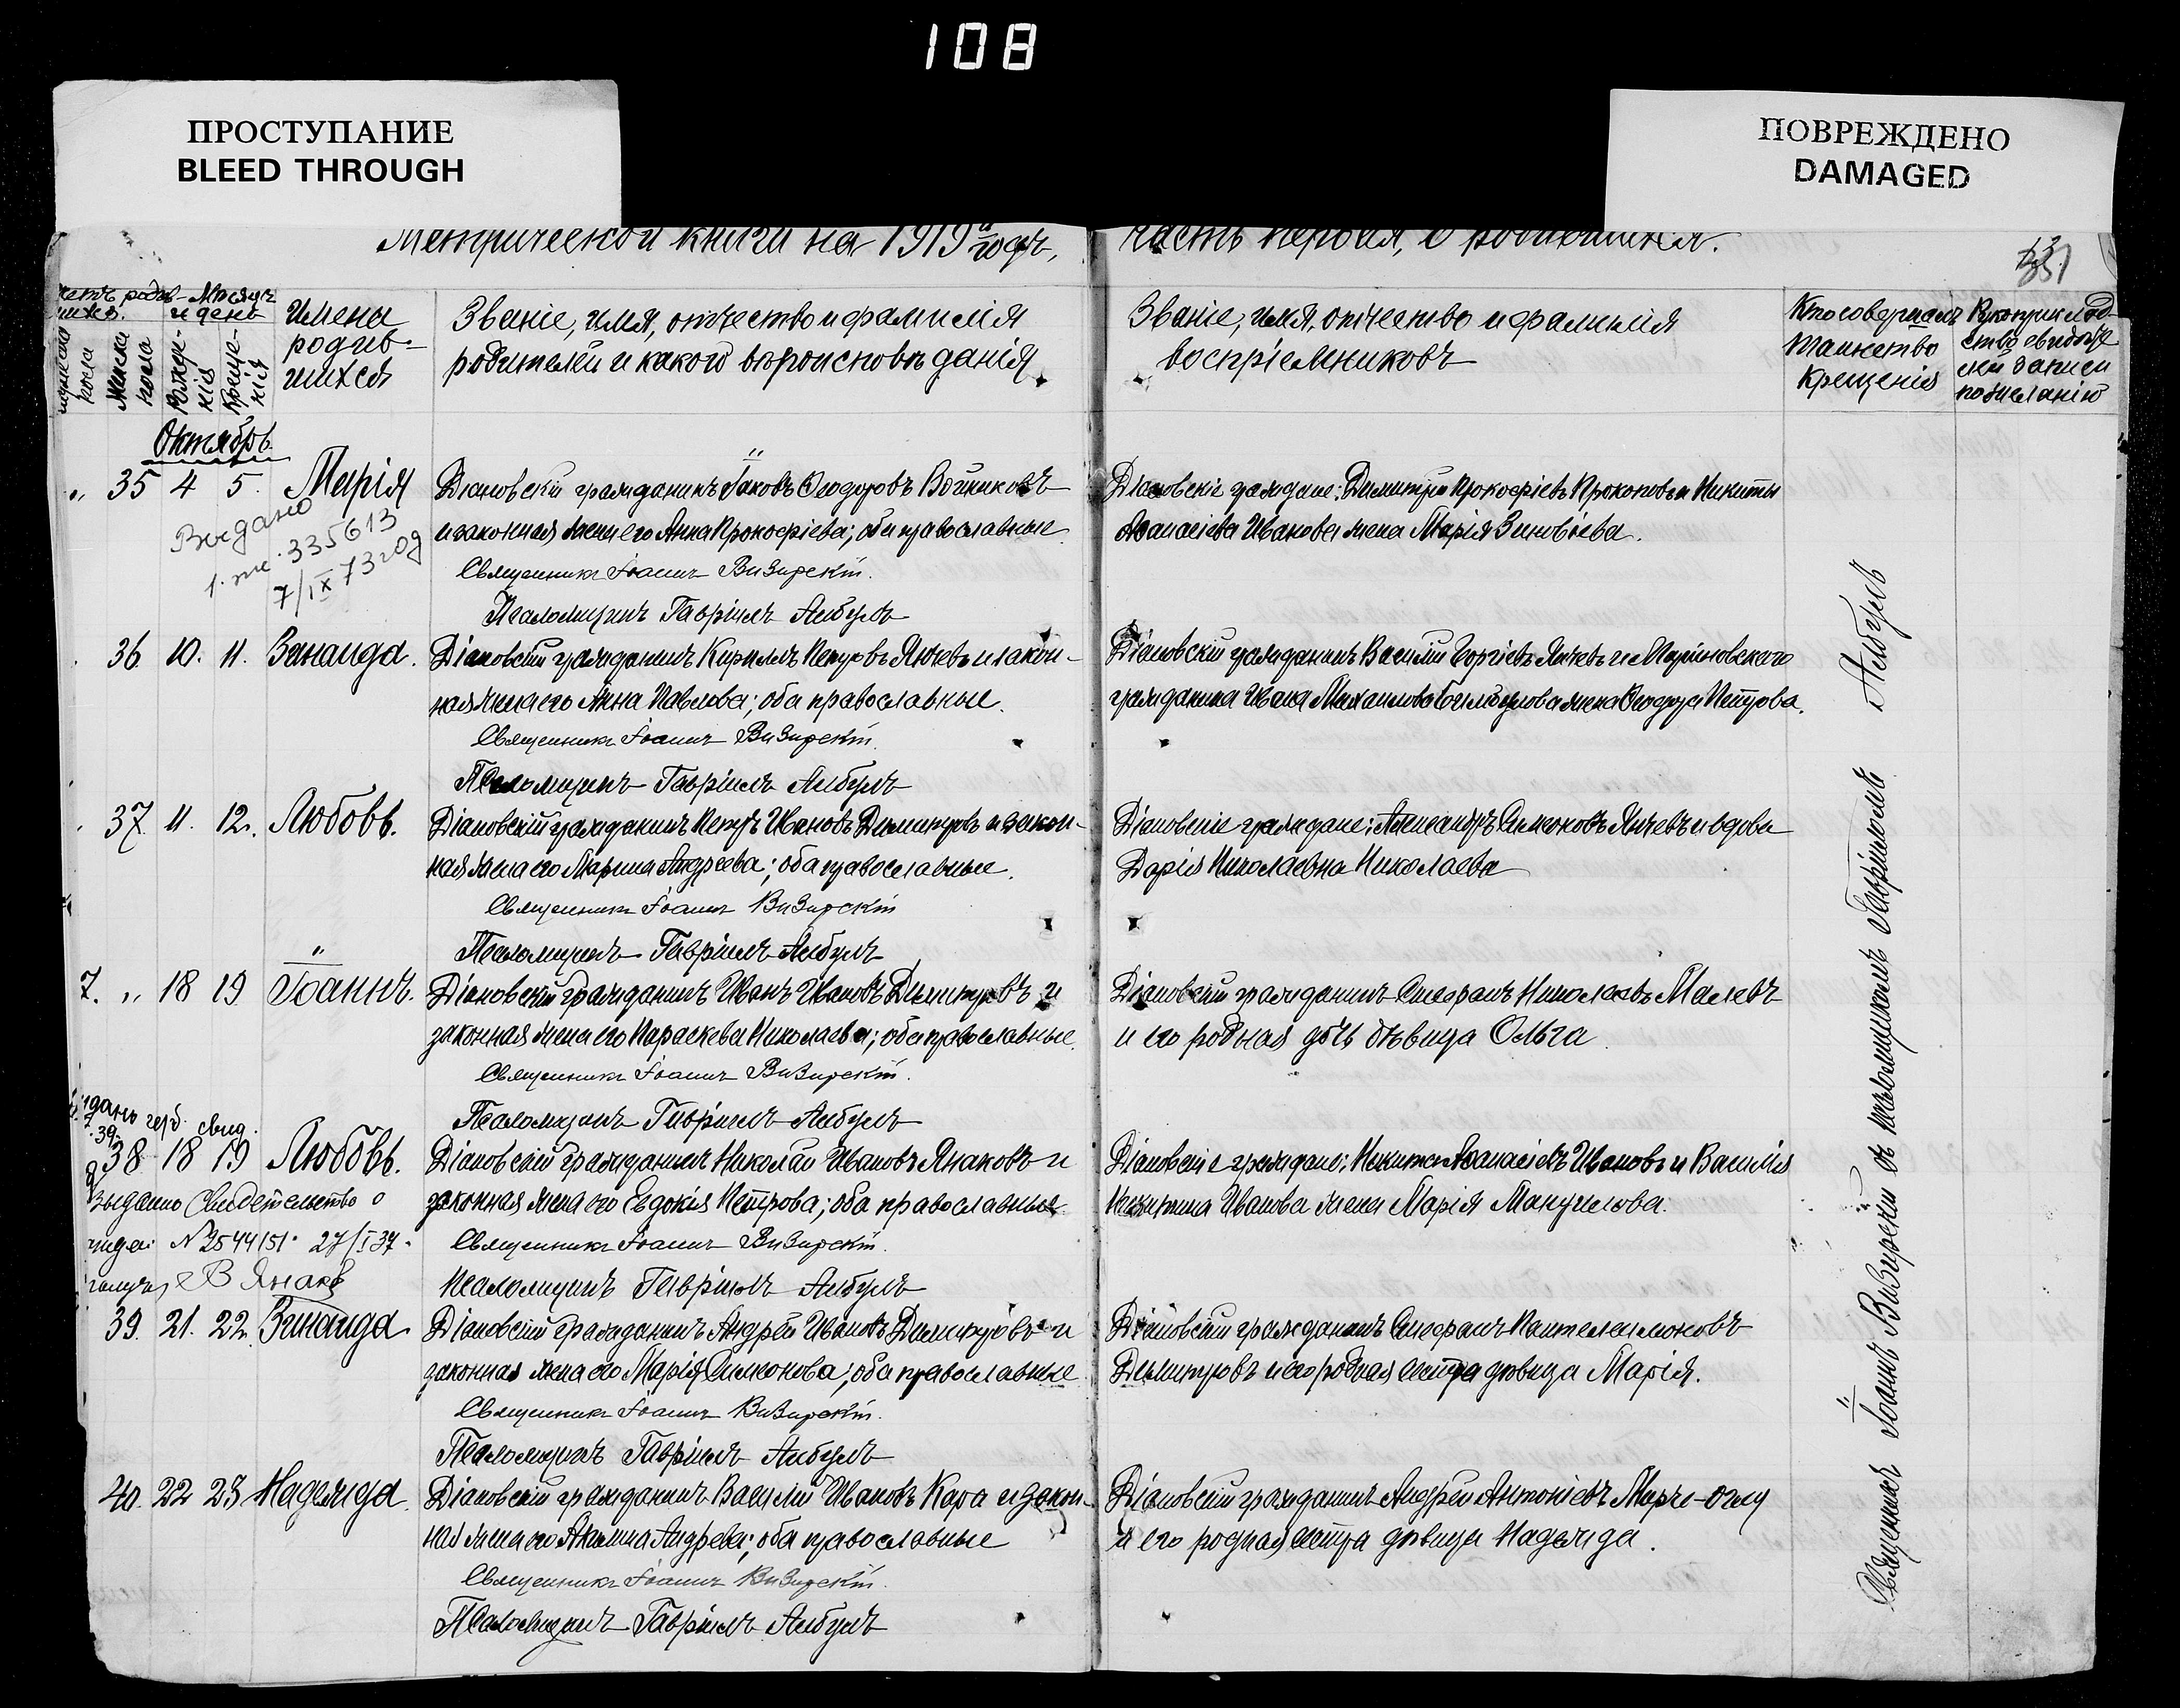 108
ПРОСТУПАНИЕ
BLEED THROUGH
ПОВРЕЖДЕНО
DAMAGED
Метрической книги на 1919 й годъ,
часть первая, о родившихся.
351
Мѣсяцъ
и день
мужеска пола
женска пола
Рожде-нія
Креще-нія
Имена
родив-
шихся
Званіе, имя, отчество и фамилія
родителей и какого вѣроисповѣданія
Званіе, имя, отчество и фамилія
воспріемниковъ
Кто совершалъ
таинство
крещенія
Рукоприклад-
ство свидѣте
лей записи
по желанію
Октябрь.
„ 35 4 5. Марія
Діановскій гражданинъ Іаковъ Ѳеодоровъ Войниковъ
и законная жена его Анна Прокофіева; оба православные
Священникъ Іоаннъ Визирскій.
Псаломщикъ Гавріилъ Анбулъ
Діановскіе граждане: Димитрій Прокофіевъ Проконовъ и Никиты
Аѳанасіева Иванова жена Марія Зиновіева.
Выдано
1. ж. 335613
7/IX 73 год
36 10. 11. Зинаида.
Діановскій гражданинъ Кириллъ Петровъ Янчевъ и закон-
ная жена его Анна Павлова; оба православные.
Священникъ Іоаннъ Визирскій.
Псаломщикъ Гавріилъ Анбулъ
Діановскій гражданинъ Василій Георгіевъ Янчевъ и Мариновскаго
гражданина Ивана Михаилова жена Ѳеодора Петрова.
37. 11. 12. Любовь.
Діановскій гражданинъ Петръ Ивановъ Димитровъ и закон-
ная жена его Марина Андреева; оба православные.
Священникъ Іоаннъ Визирскій
Псаломщикъ Гавріилъ Анбулъ
Діановскіе граждане: Александръ Симеоновъ Янчевъ и вдова
Дарія Николаевна Николаева
7. „ 18 19 Іоаннъ.
Діановскій гражданинъ Иванъ Ивановъ Димитровъ и
законная жена его Параскева Николаева; оба православные.
Священникъ Іоаннъ Визирскій.
Псаломщикъ Гавріилъ Анбулъ
Діановскій гражданинъ Стефанъ Николаевъ Малевъ
и его родная дочь дѣвица Ольга
38 18 19 Любовь.
Діановскій гражданинъ Николай Ивановъ Янаковъ и
законная жена его Евдокія Петрова; оба православные
Священникъ Іоаннъ Визирскій.
Псаломщикъ Гавріилъ Анбулъ
Діановскіе граждане: Никита Аѳанасіевъ Ивановъ и Василія
Никитина Иванова жена Марія Мануилова.
выдано свидетельство о
N 2544151. 27/I 37.
В Янакъ
39. 21. 22. Зинаида
Діановскій гражданинъ Андрей Ивановъ Димитровъ и
законная жена его Марія Симеонова; оба православные
Священникъ Іоаннъ Визирскій.
Псаломщикъ Гавріилъ Анбулъ
Діановскій гражданинъ Стефанъ Пантелеимоновъ
Димитровъ и его родная сестра дѣвица Марія.
40. 22 23 Надежда.
Діановскій гражданинъ Василій Ивановъ Кара и закон-
ная жена его Акилина Андреева; оба православные
Священникъ Іоаннъ Визирскій.
Псаломщикъ Гавріилъ Анбулъ
Діановскій гражданинъ Андрей Антоніевъ Мерче-оглу
и его родная сестра дѣвица Надежда.
Священникъ Іоаннъ Визирскій съ псаломщикомъ Гавріиломъ Анбулъ